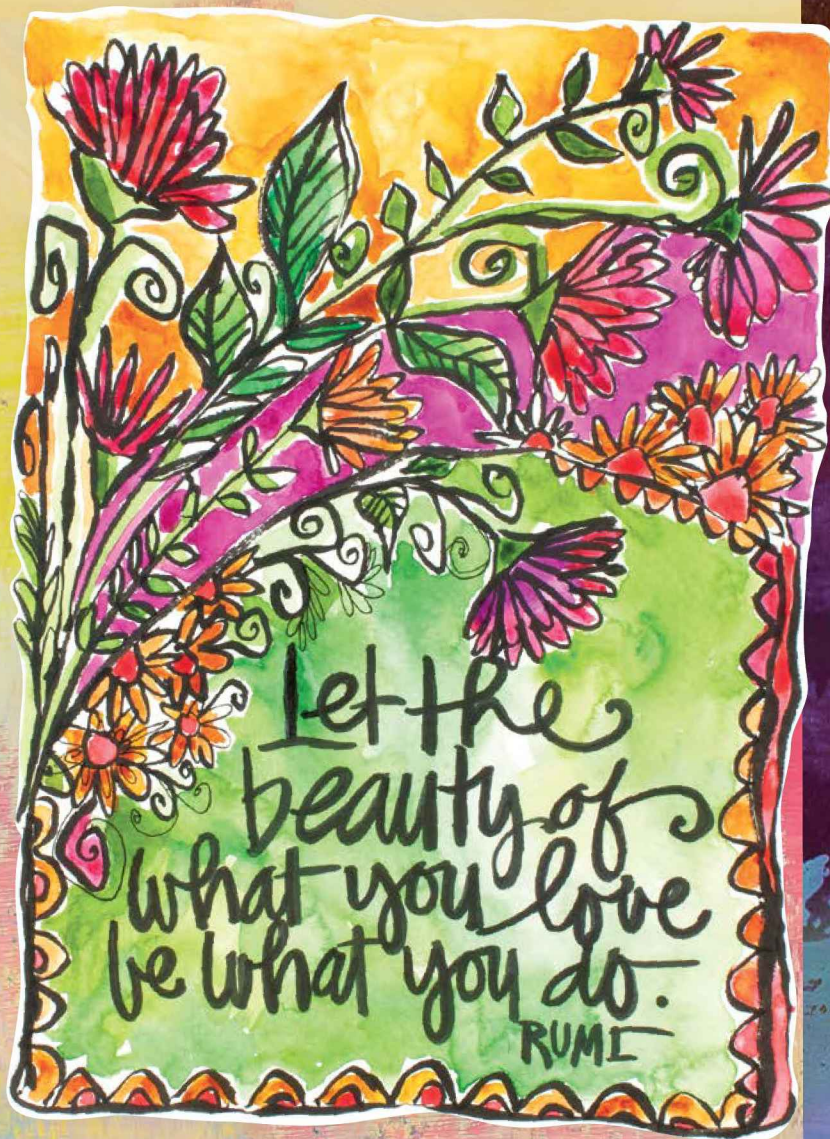 Let the
beauty of
what you love
be what you do.
RUMI